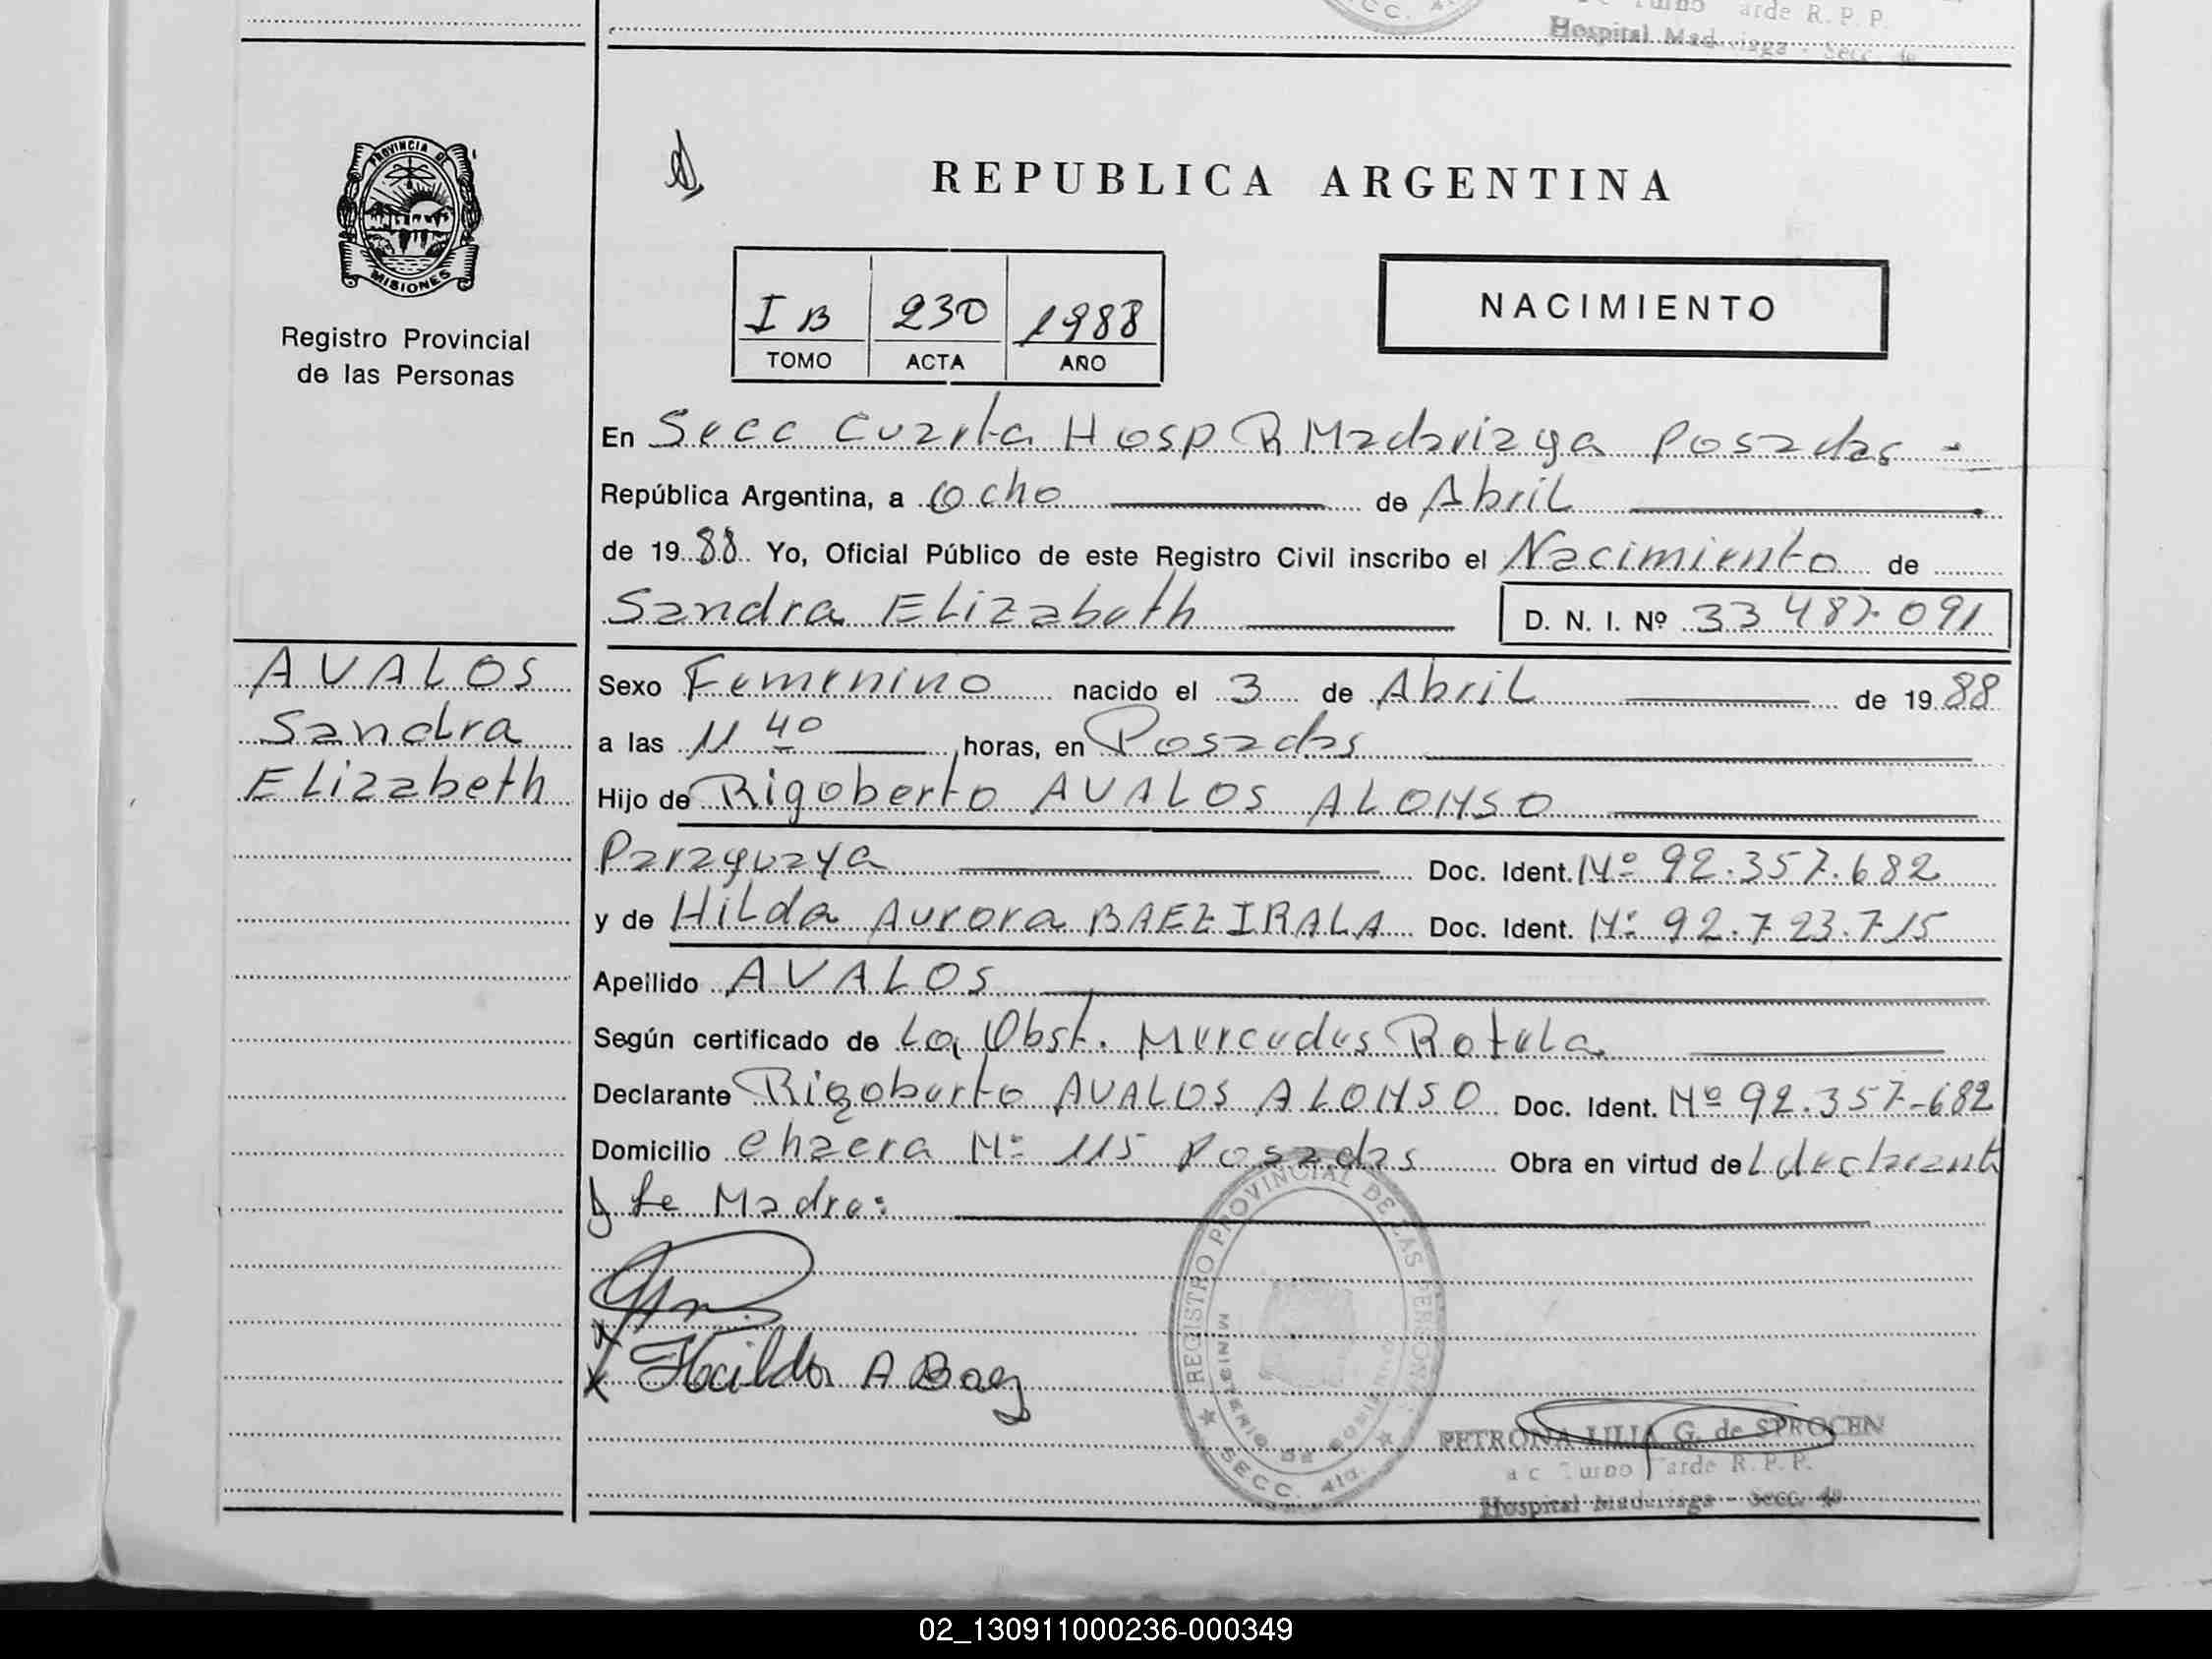 Turno Tarde R. P. P.
Hospital Madariaga - Secc. 4a
PROVINCIA DE
MISIONES
Registro Provincial
de las Personas
REPUBLICA ARGENTINA
I B 230 1988
TOMO ACTA AÑO
NACIMIENTO
En Secc Cuarta Hosp R Madariaga Posadas -
República Argentina, a Ocho de Abril
de 1988 Yo, Oficial Público de este Registro Civil inscribo el Nacimiento de
Sandra Elizabeth D. N. I. Nº 33 487.091
AVALOS
Sandra
Elizabeth
Sexo Femenino nacido el 3 de Abril de 1988
a las 11 40 horas, en Posadas
Hijo de Rigoberto AVALOS ALONSO
Paraguaya Doc. Ident. Nº 92.357.682
y de Hilda Aurora BAEZ IRALA Doc. Ident. Nº 92.723.715
Apellido AVALOS
Según certificado de La Obst. Mercedes Rotela
Declarante Rigoberto AVALOS ALONSO Doc. Ident. Nº 92.357-682
Domicilio Chacra Nº 115 Posadas Obra en virtud de
y la Madre:
Hilda A Baez
REGISTRO PROVINCIAL DE LAS PERSONAS
MINISTERIO DE GOBIERNO
SECC. 4ta.
PETRONA LILIA G. de SPROCEN
a c Turno Tarde R. P. P.
Hospital Madariaga - Secc. 4a
02_130911000236-000349